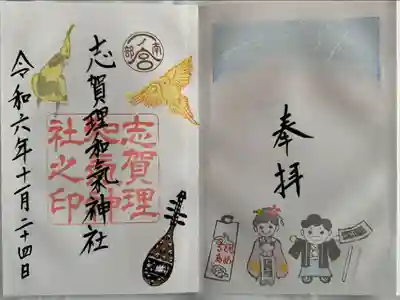 奉拝
南
宮
部
志賀理和氣神社
志賀理
和氣神
社之印
令和六年十一月二十四日